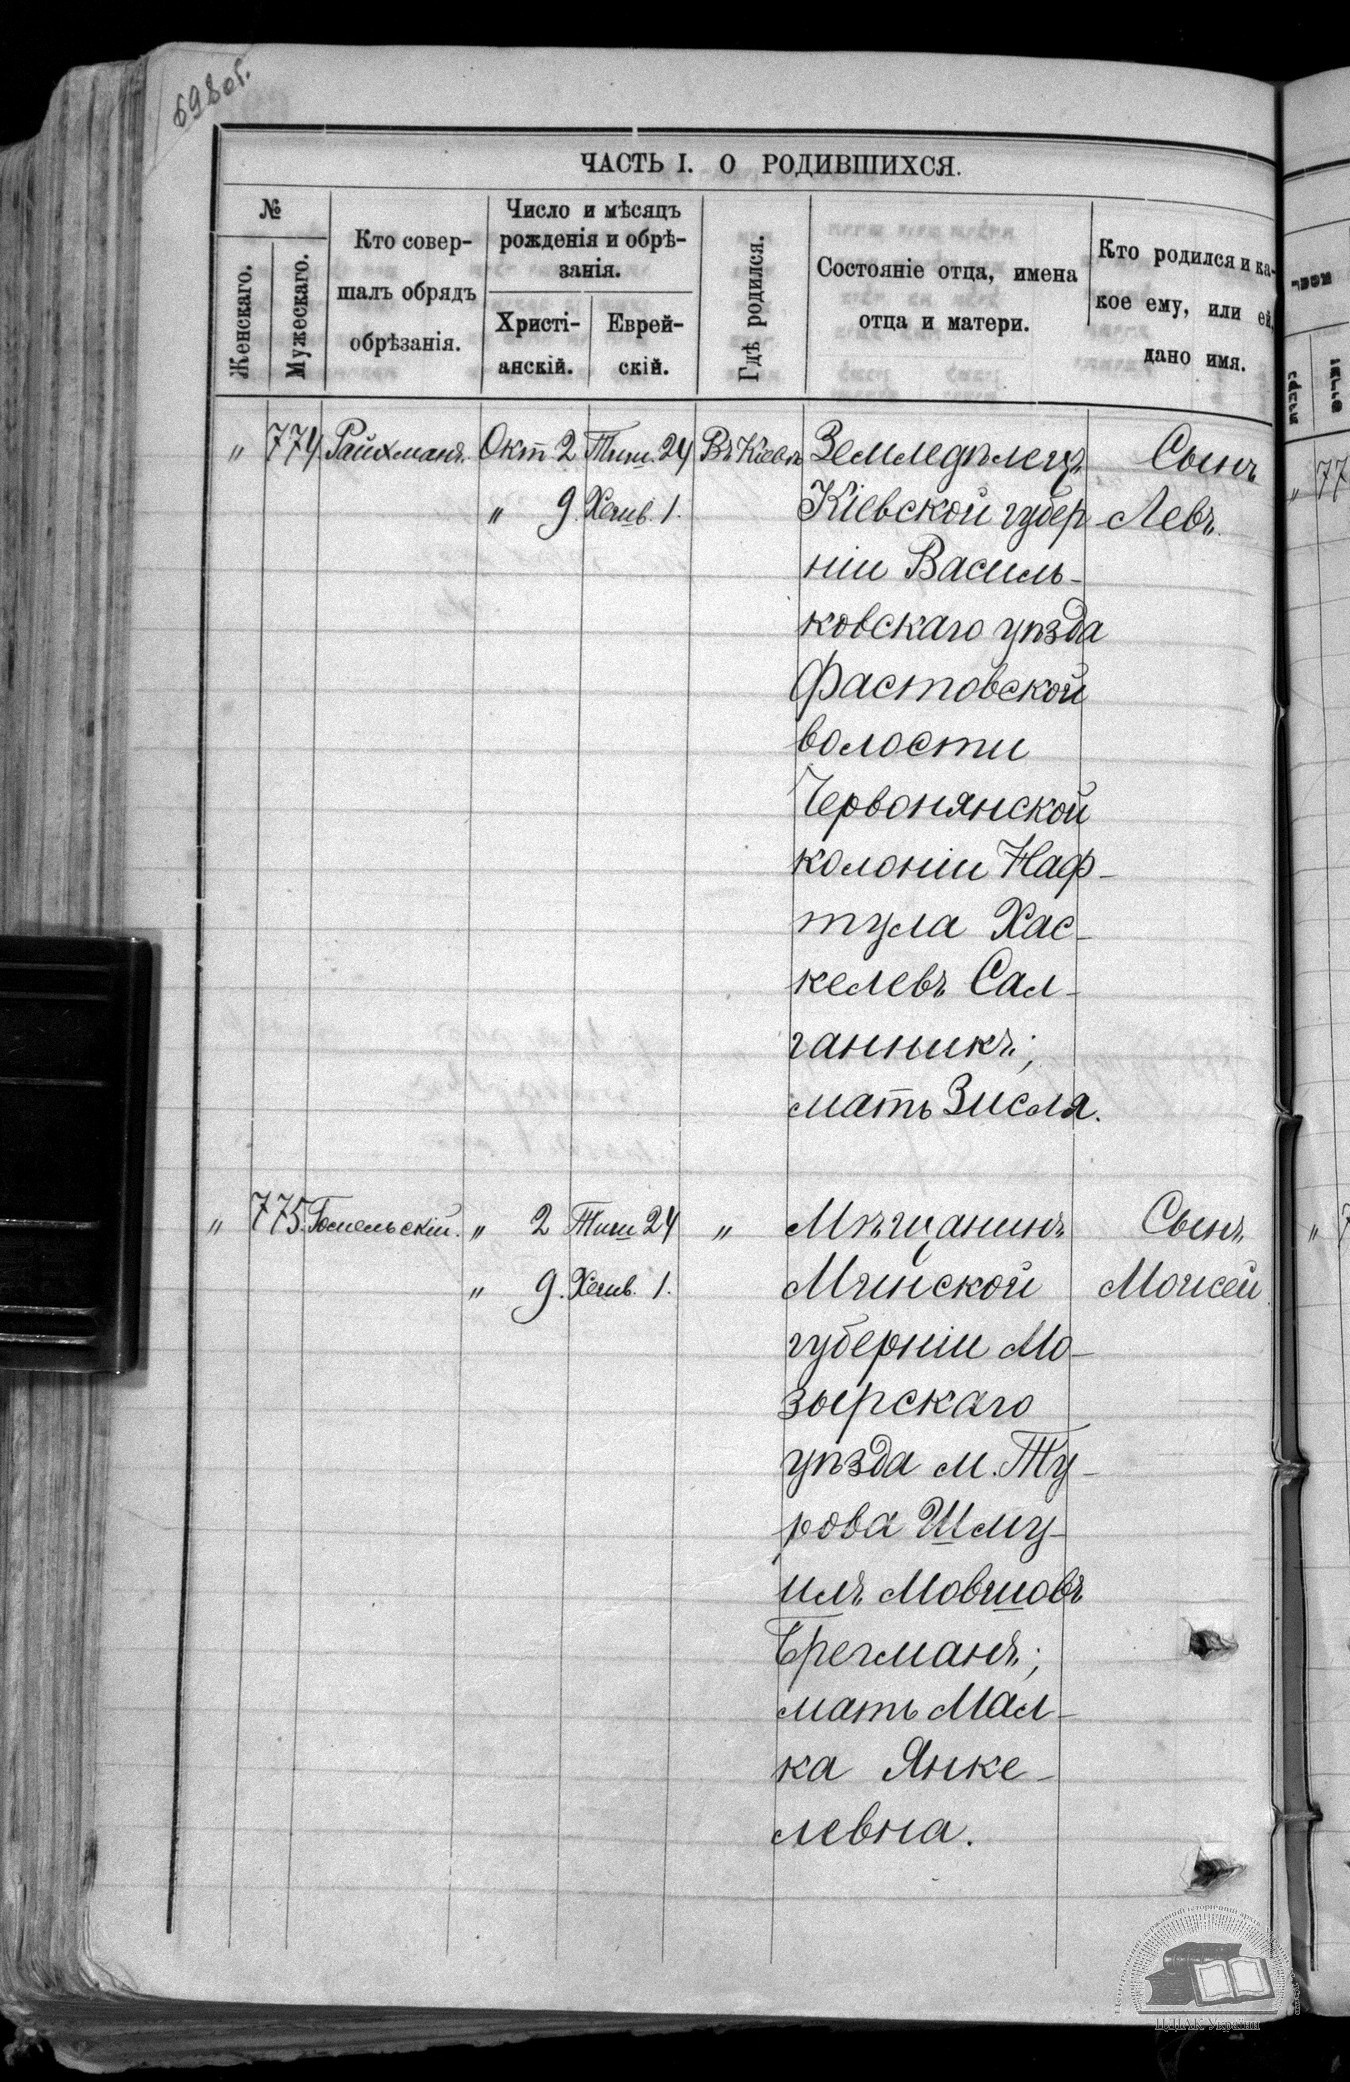 698об.
ЧАСТЬ I. О РОДИВШИХСЯ.
№
Женскаго.
Мужескаго.
Кто совер-
шалъ обрядъ
обрѣзанія.
Число и мѣсяцъ
рожденія и обрѣ-
занія.
Христі-
анскій.
Еврей-
скій.
Гдѣ родился.
Состояніе отца, имена
отца и матери.
Кто родился и ка-
кое ему, или ей,
дано имя.
" 774 Райхманъ. Окт 2 Тиш. 24 Въ Кіевѣ Земледѣлецъ Сынъ
" 9. Хешв. 1. Кіевской губер Левъ.
ніи Василь-
ковскаго уѣзда
Фастовской
волости
Червонянской
колоніи Наф-
тула Хас-
келевъ Сал-
ганникъ;
мать Зисля.
" 775. Гомельскій. " 2 Тиш 24 " Мѣщанинъ Сынъ
" 9. Хешв. 1. Минской Моисей
губерніи Мо-
зырскаго
уѣзда м. Ту-
рова Шму-
илъ Мовшовъ
Брегманъ;
мать Мал-
ка Янке-
левна.
77
" 7
ЦДІАК України